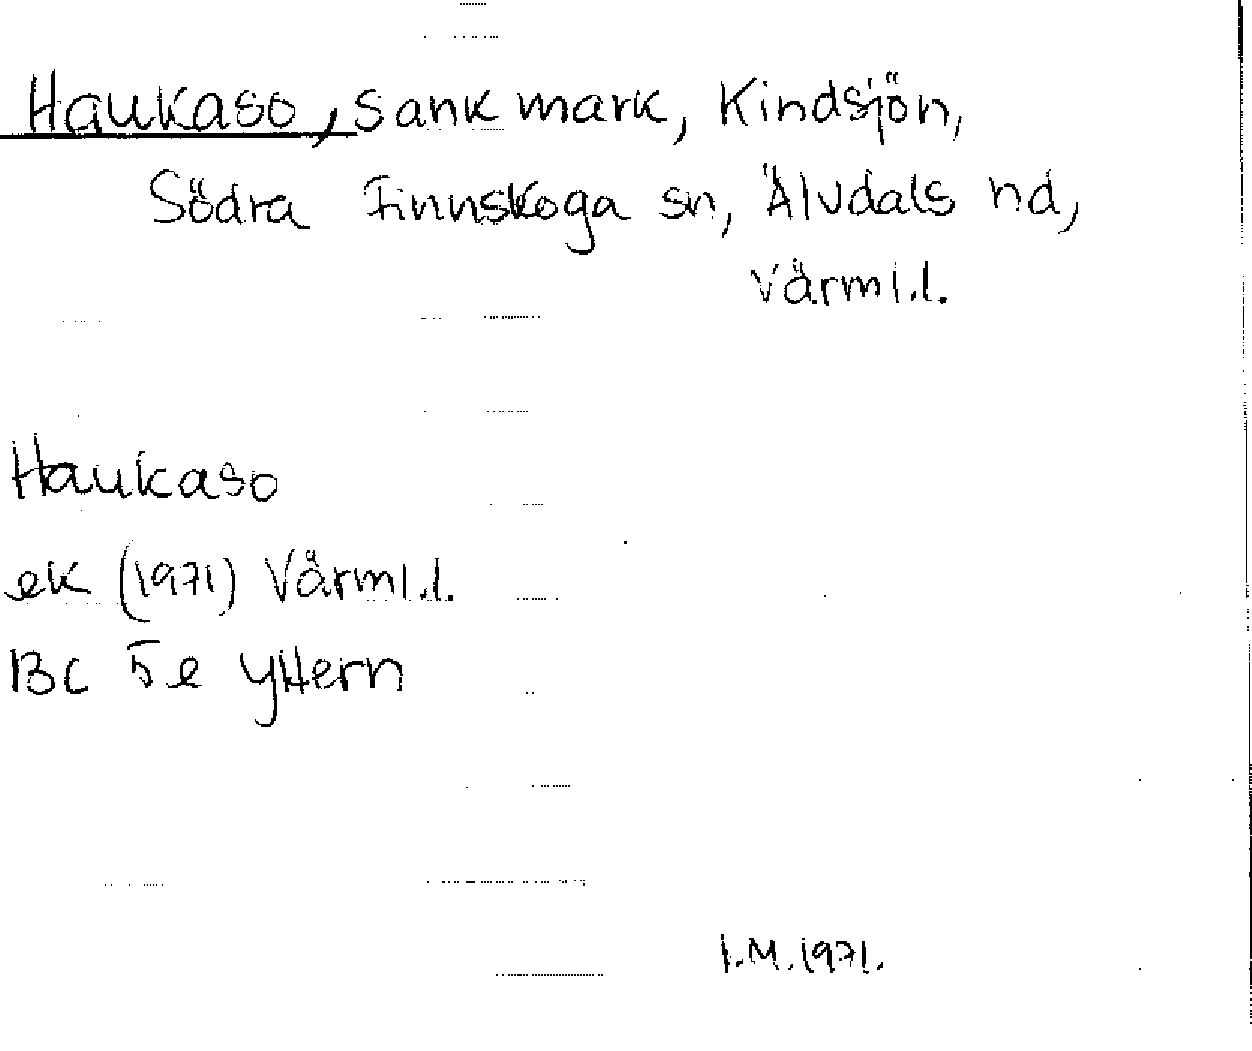 Haukaso, sank mark, Kindsjön,
Södra Finnskoga sn, Älvdals hd,
Värml.l.
Haukaso
ek (1971) Värml.l.
BC 5e yttern
I.M. 1971.